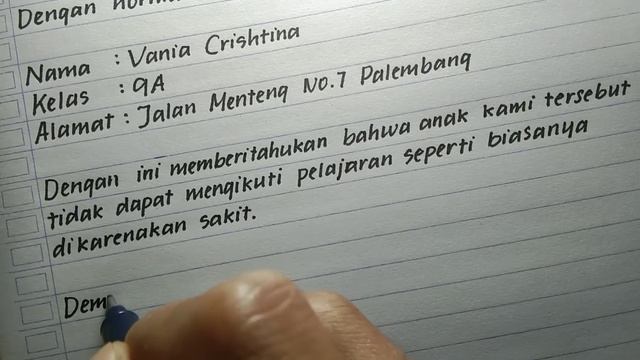 Dengan hormat
Nama : Vania Crishtina
Kelas : 9A
Alamat : Jalan Menteng No.7 Palembang
Dengan ini memberitahukan bahwa anak kami tersebut
tidak dapat mengikuti pelajaran seperti biasanya
dikarenakan sakit.
Dem